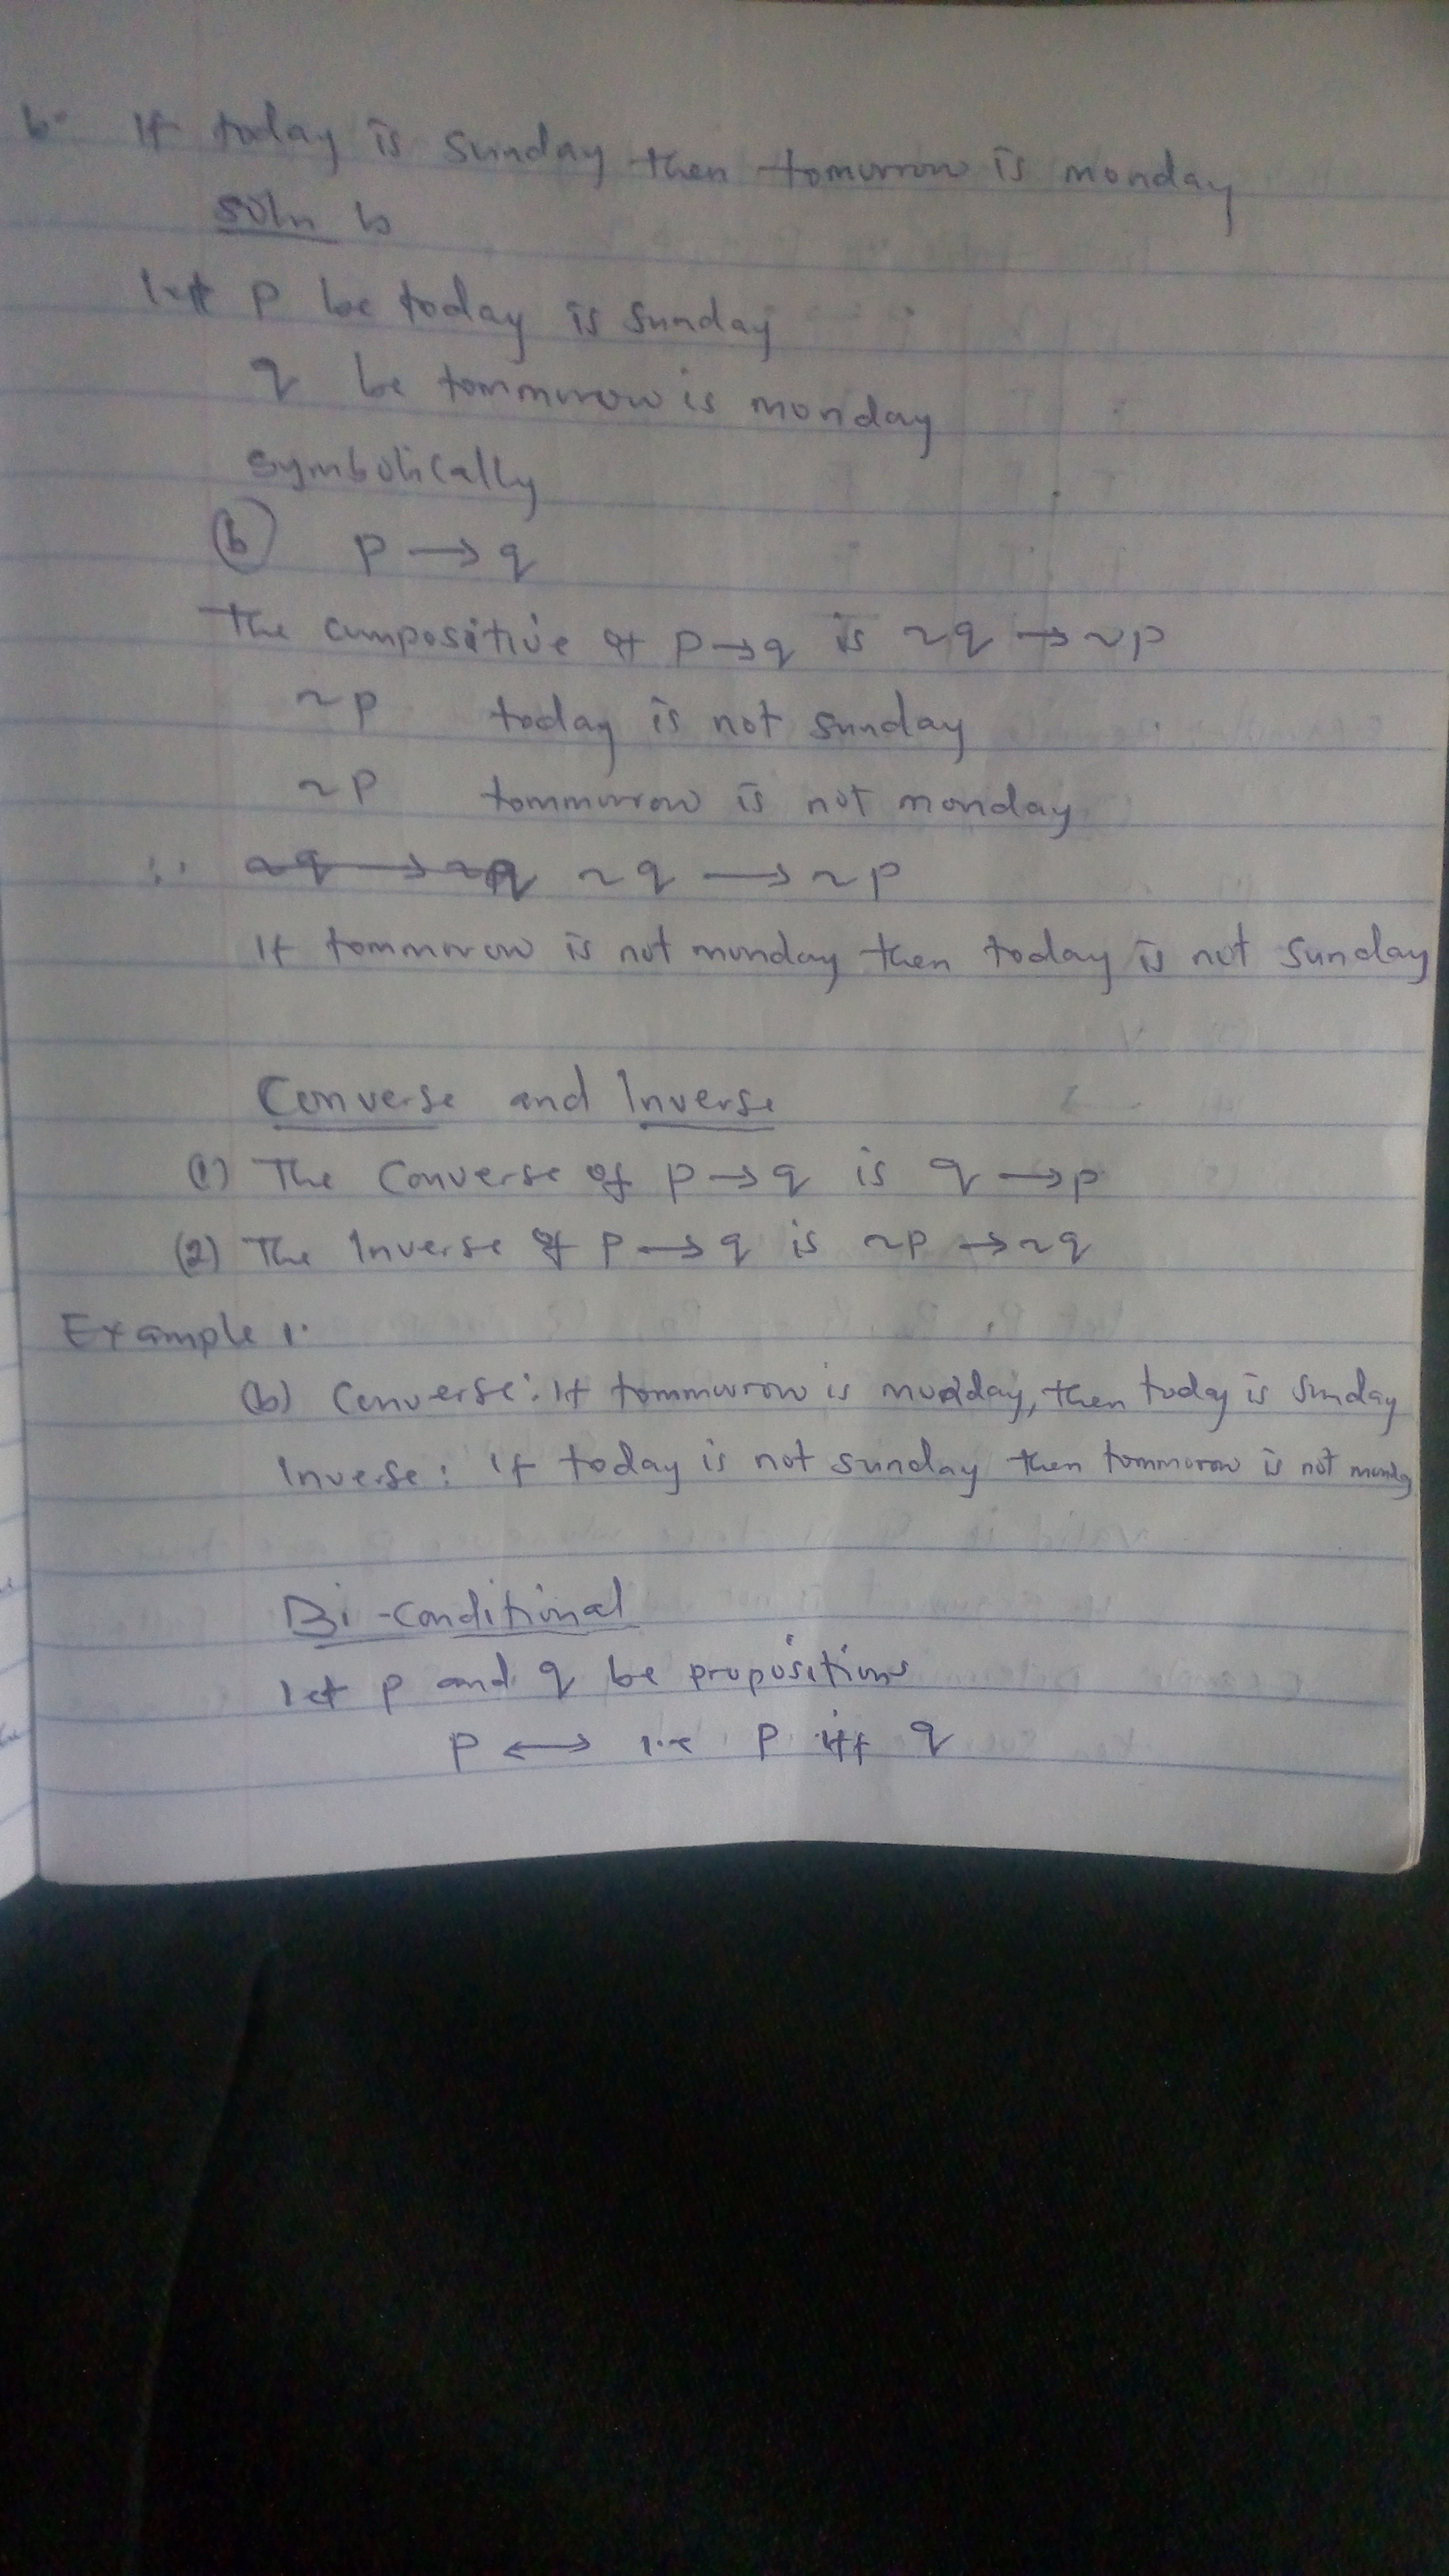 b. If today is sunday then tomorrow is monday
soln b
let p be today is sunday
q be tommorrow is monday
symbolically
(b) p → q
The compositive of p → q is ~q → ~p
~p today is not sunday
~p tommorrow is not monday
∴ ~q → ~q ~q → ~p
If tommorrow is not monday then today is not sunday
Converse and Inverse
(1) The Converse of p → q is q → p
(2) The Inverse of p → q is ~p → ~q
Example 1.
(b) Converse: If tommorrow is monday, then today is sunday
Inverse: If today is not sunday then tommorow is not monday
Bi-conditional
let p and q be propositions
p ↔ i.e p iff q